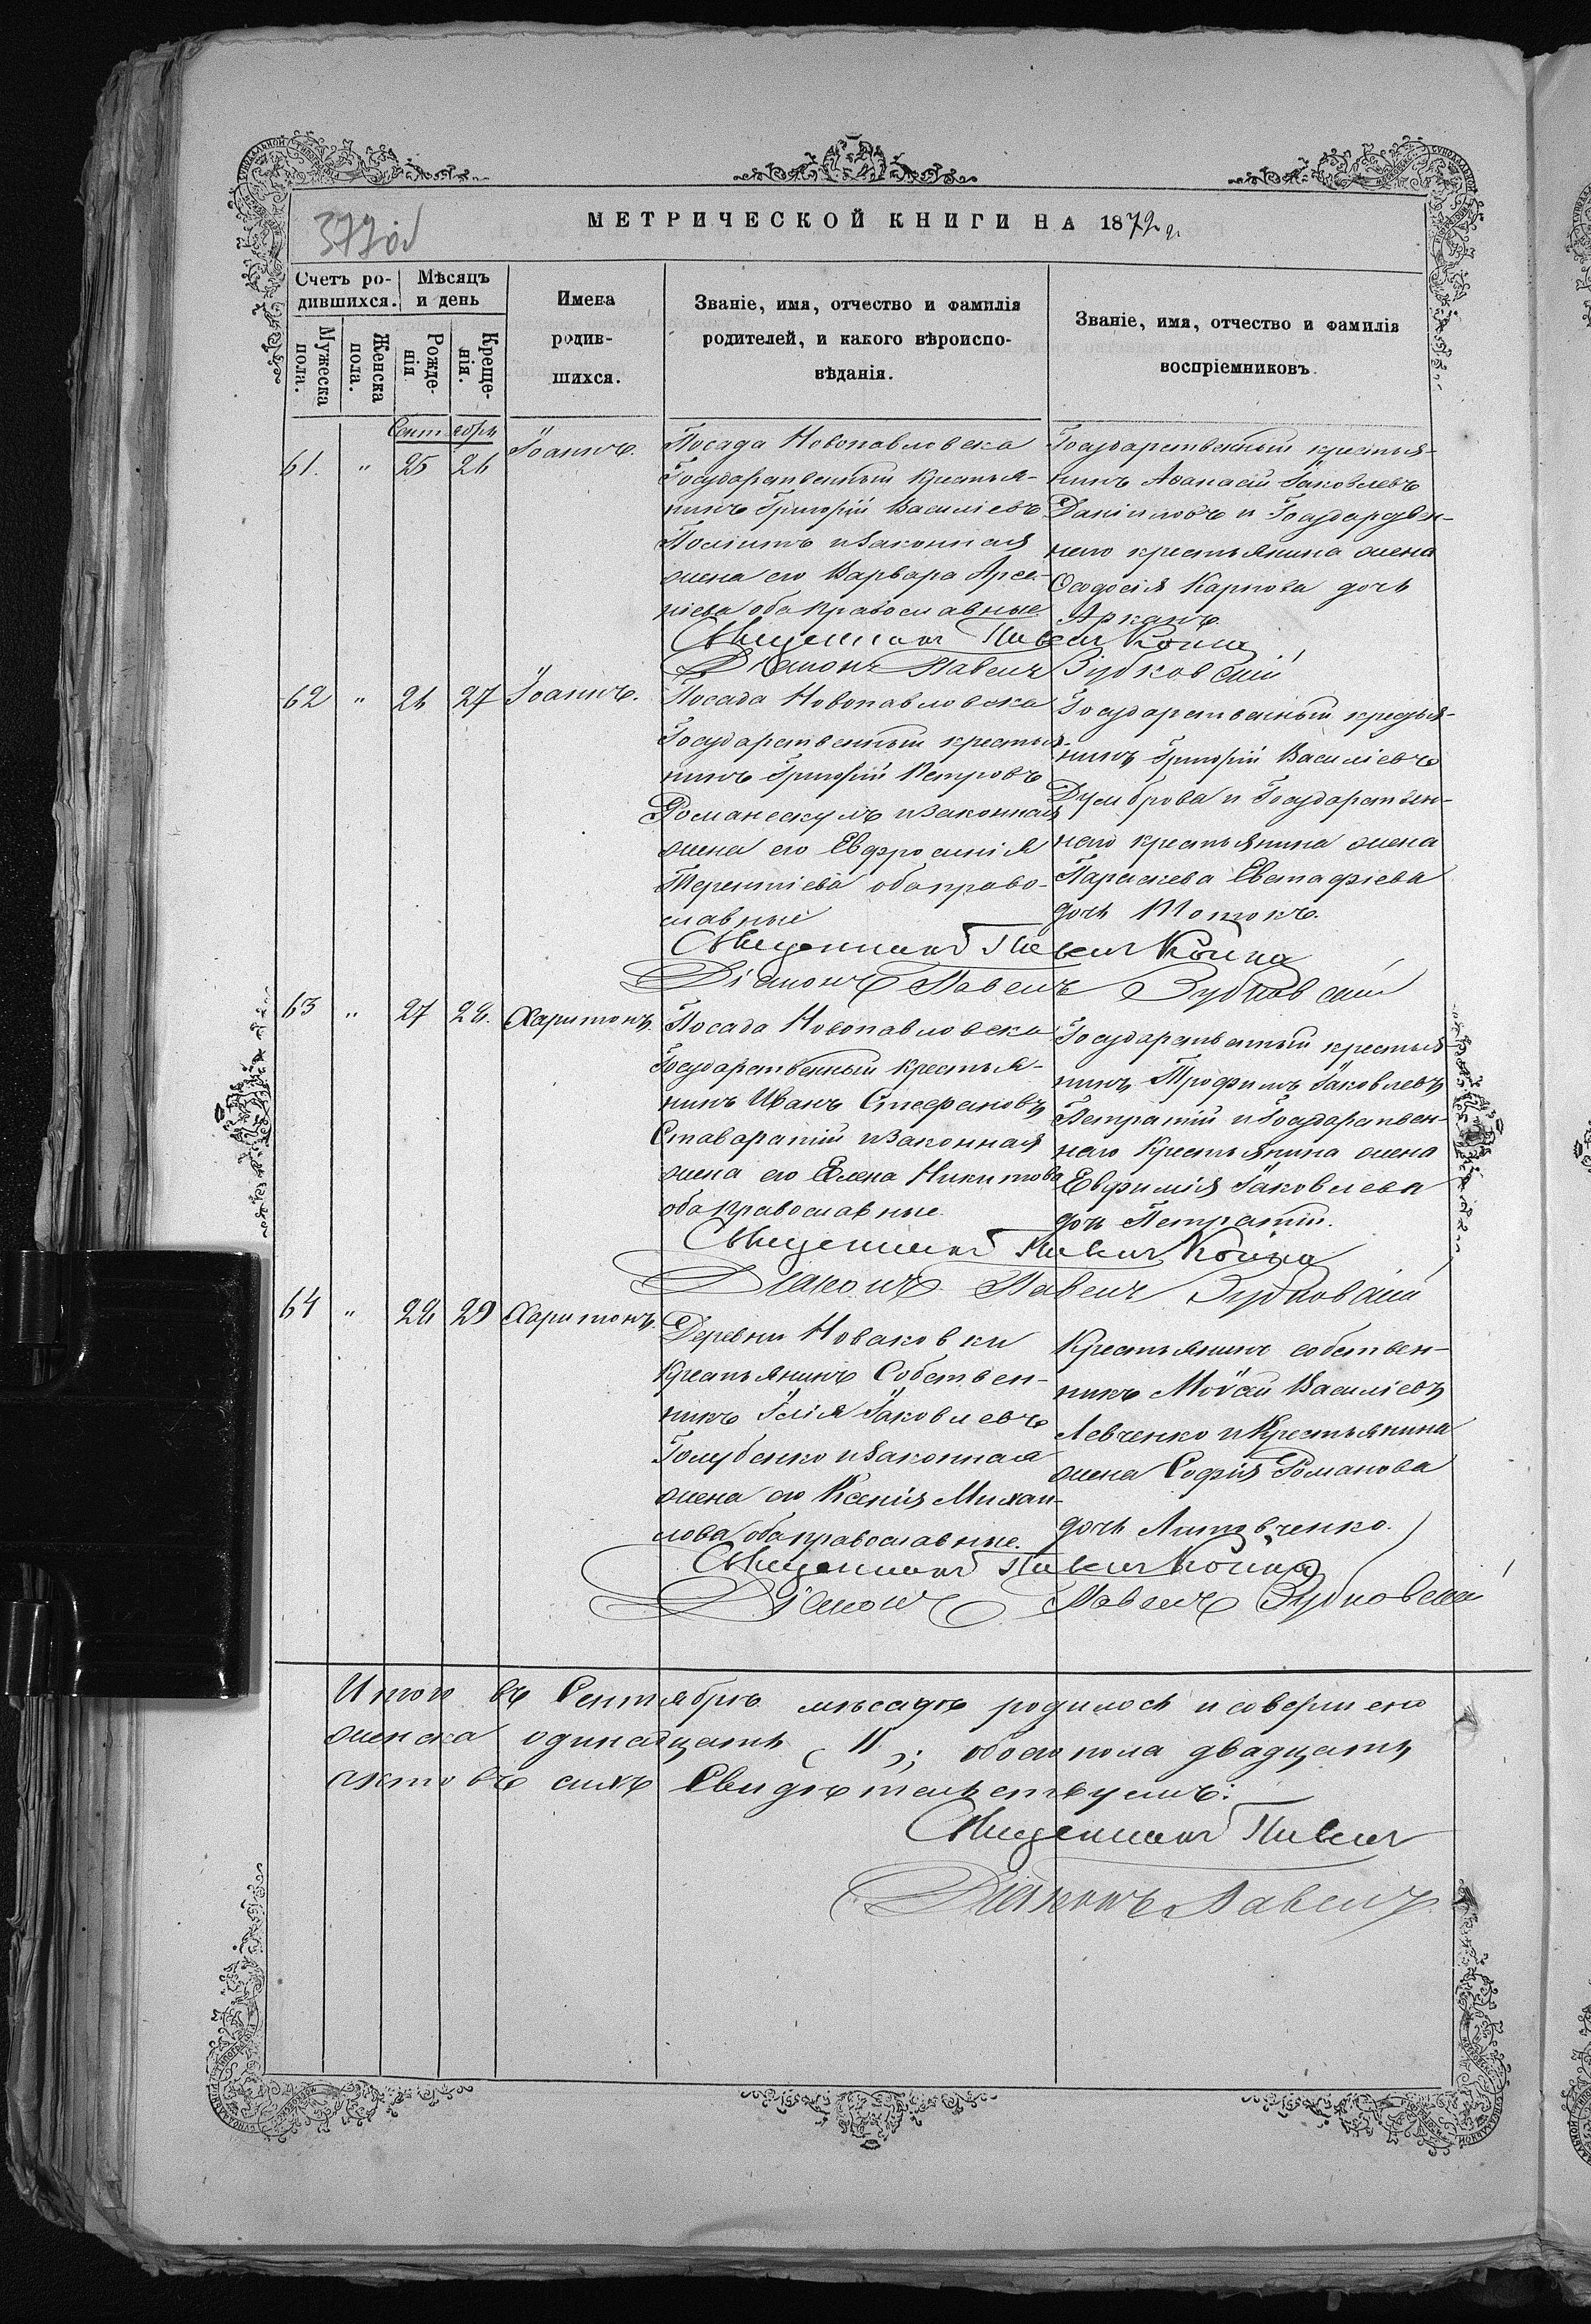 379 об
МЕТРИЧЕСКОЙ КНИГИ НА 1872 г.
Счетъ ро-
дившихся.
Мѣсяцъ
и день
Мужеска
пола.
Женска
пола.
Рожде-
нія
Креще-
нія.
Имена
родив-
шихся.
Званіе, имя, отчество и фамилія
родителей, и какого вѣроиспо-
вѣданія.
Званіе, имя, отчество и фамилія
воспріемниковъ.
Сентябрь
61. " 25 26 Іоаннъ.
Посада Новопавловска
Государственный крестья-
нинъ Григорій Василіевъ
и законная
жена его Варвара Арсе-
ніева оба православные
Государственный крестья-
нинъ Аѳанасій Іаковлевъ
Даніиловъ и Государствен-
наго крестьянина жена
Ѳеодосія Карпова дочь
Арканъ
Священникъ Павелъ Койка
Діаконъ Павелъ Зубковскій
62 " 26 27 Іоаннъ.
Посада Новопавловска
Государственный крестья-
нинъ Григорій Петровъ
Романескулъ и законная
жена его Евфросинія
Терентіева оба право-
славные
Государственный крестья-
нинъ Григорій Василіевъ
Думброва и Государствен-
наго крестьянина жена
Параскева Евстафіева
дочь
Священникъ Павелъ Койка
Діаконъ Павелъ Зубковскій
63 " 27 28. Харитонъ.
Посада Новопавловска
Государственный крестья-
нинъ Иванъ Стефановъ
Ставратій и законная
жена его Елена Никитова
оба православные.
Государственный крестья-
нинъ Трофимъ Іаковлевъ
Петратій и Государствен-
наго крестьянина жена
Евфимія Іаковлева
дочь Петратій.
Священникъ Павелъ Койка
Діаконъ Павелъ Зубковскій
64 " 28 29 Харитонъ.
Деревни Новаковки
Крестьянинъ Собствен-
никъ Илія Іаковлевъ
Голубенко и законная
жена его Ксенія Михаи-
лова оба православные.
Крестьянинъ собствен-
никъ Моѵсей Василіевъ
Левченко и Крестьянина
жена Софія Романова
дочь Литовченко.
Священникъ Павелъ Койка
Діаконъ Павелъ Зубковскій
Итого въ Сентябрѣ мѣсяцѣ родилось и совершено
женска одинадцать (11); обоего пола двадцать
актовъ сихъ Свидѣтельствуемъ:
Священникъ Павелъ
Діаконъ Павелъ